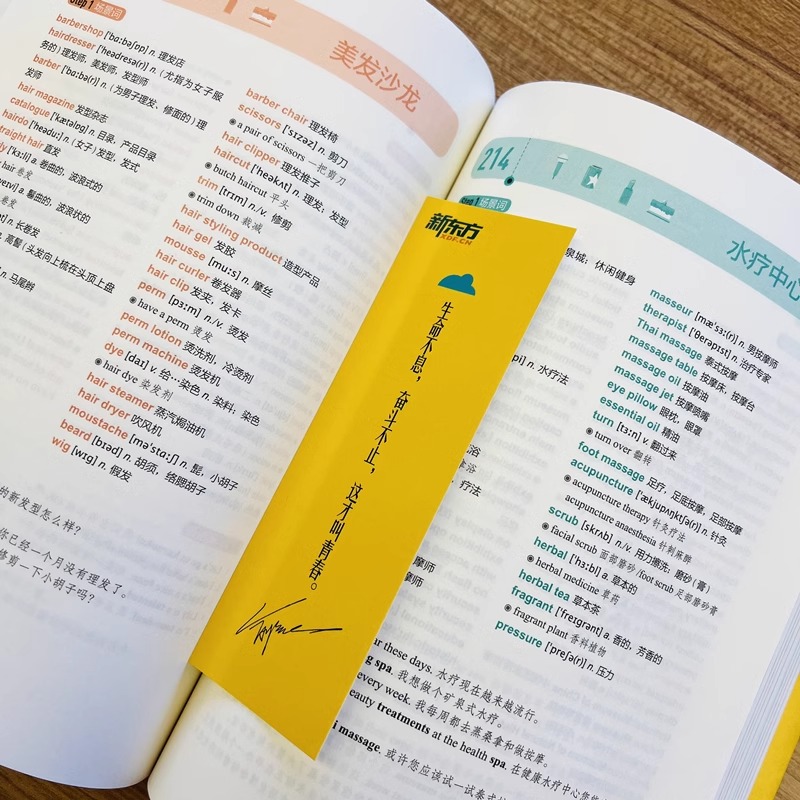 Step 1 场景词
美发沙龙
barbershop ['bɑːbəʃɒp] n. 理发店
hairdresser ['heədresə(r)] n. (尤指为女子服
务的) 理发师，美发师，发型师
barber ['bɑːbə(r)] n. (为男子理发、修面的) 理
发师
hair magazine 发型杂志
catalogue ['kætəlɒg] n. 目录，产品目录
hairdo ['heəduː] n. (女子) 发型，发式
straight hair 直发
a. 卷曲的，波浪式的
hair 卷发
a. 鬈曲的，波浪状的
卷发
n. 长卷发
高髻 (头发向上梳在头顶上盘
n. 马尾辫
的新发型怎么样？
你已经一个月没有理发了。
修剪一下小胡子吗？
barber chair 理发椅
scissors ['sɪzəz] n. 剪刀
a pair of scissors 一把剪刀
hair clipper 理发推子
haircut ['heəkʌt] n. 理发；发型
butch haircut 平头
trim [trɪm] n./v. 修剪
trim down 裁减
hair styling product 造型产品
hair gel 发胶
mousse [muːs] n. 摩丝
hair curler 卷发器
hair clip 发夹，发卡
perm [pɜːm] n./v. 烫发
have a perm 烫发
perm lotion 烫洗剂，冷烫剂
perm machine 烫发机
dye [daɪ] v. 给…染色 n. 染料；染色
hair dye 染发剂
hair steamer 蒸汽焗油机
hair dryer 吹风机
moustache [mə'stɑːʃ] n. 髭，小胡子
beard [bɪəd] n. 胡须，络腮胡子
wig [wɪg] n. 假发
新东方
XDF.CN
生命不息，奋斗不止，这才叫青春。
214
水疗中心
Step 1 场景词
泉城；休闲健身
n. 水疗法
浴
疗法
摩师
摩师
masseur [mæ'sɜː(r)] n. 男按摩师
therapist ['θerəpɪst] n. 治疗专家
Thai massage 泰式按摩
massage table 按摩床，按摩台
massage oil 按摩油
massage jet 按摩喷嘴
eye pillow 眼枕，眼罩
essential oil 精油
turn [tɜːn] v. 翻过来
turn over 翻转
foot massage 足疗，足底按摩，足部按摩
acupuncture ['ækjupʌŋktʃə(r)] n. 针灸
acupuncture therapy 针灸疗法
acupuncture anaesthesia 针刺麻醉
scrub [skrʌb] n./v. 用力擦洗；磨砂 (膏)
facial scrub 面部磨砂 /foot scrub 足部磨砂膏
herbal ['hɜːbl] a. 草本的
herbal medicine 草药
herbal tea 草本茶
fragrant ['freɪgrənt] a. 香的，芳香的
fragrant plant 香料植物
pressure ['preʃə(r)] n. 压力
these days. 水疗现在越来越流行。
spa. 我想做个矿泉式水疗。
every week. 我每周都去蒸桑拿和做按摩。
treatments at the health spa. 在健康水疗中心
massage, 或许您应该试一试